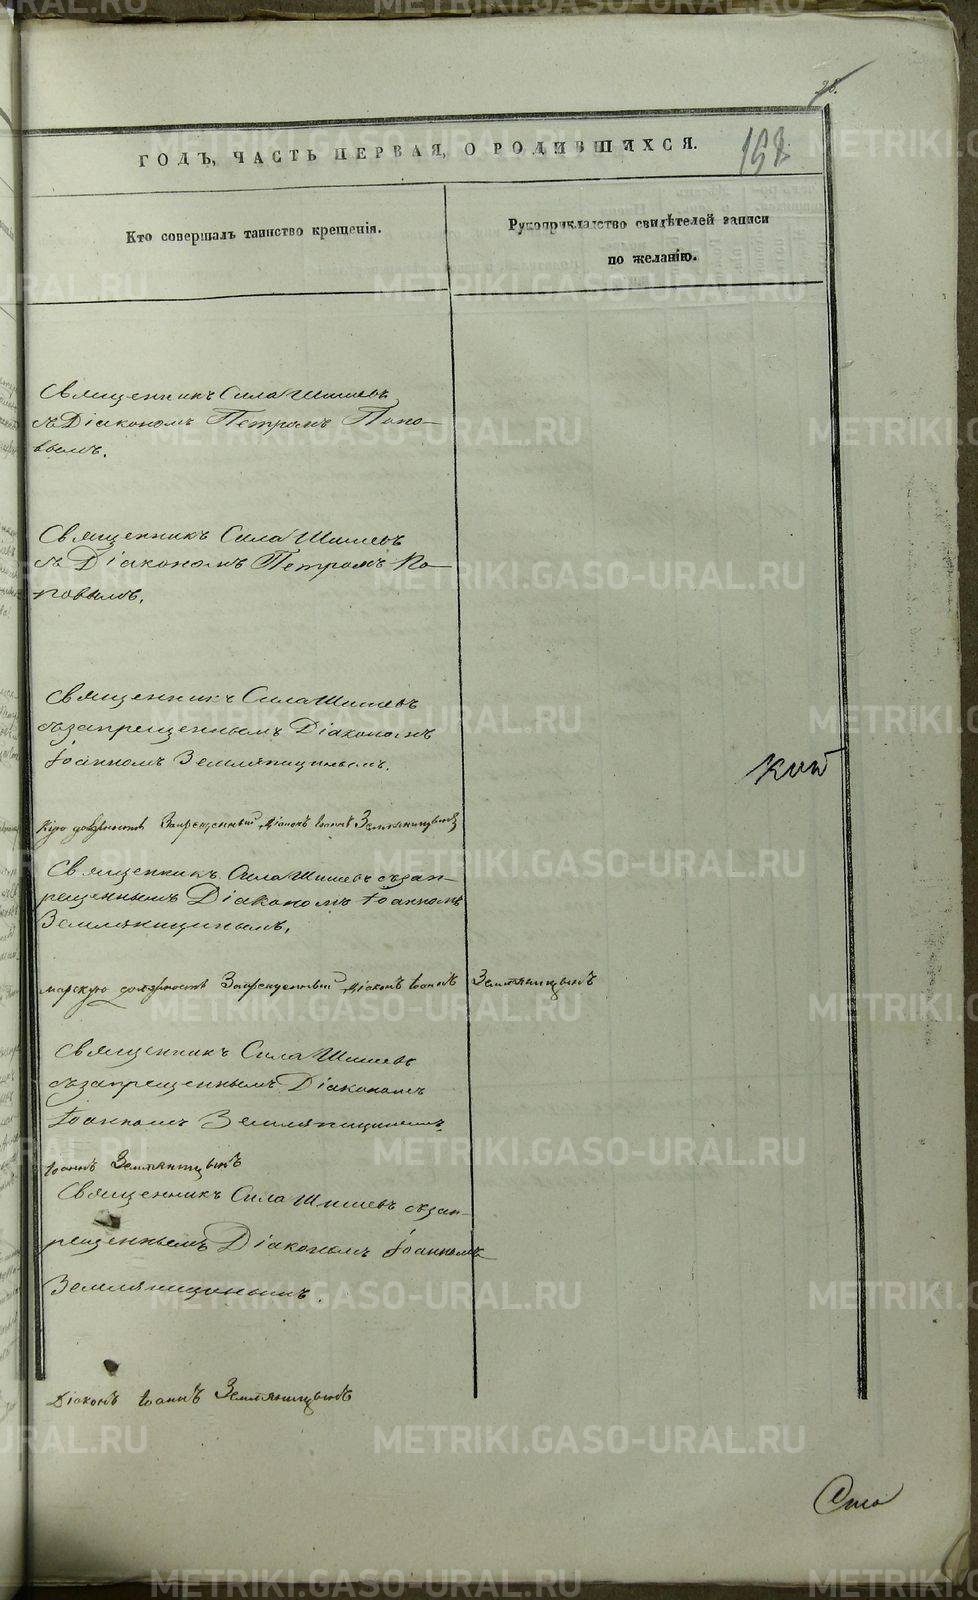 28.
ГОДЪ, ЧАСТЬ ПЕРВАЯ, О РОДИВШИХСЯ.
Кто совершалъ таинство крещенія.
Рукоприкладство свидѣтелей записи
по желанію.
Священникъ Сила Шишевъ
съ Діакономъ Петромъ Попо-
вымъ.
Священникъ Сила Шишевъ
съ Діакономъ Петромъ По-
повымъ.
Священникъ Сила Шишевъ
съ запрещеннымъ Діакономъ
Іоанномъ Земляницинымъ.
скую должность Запрещенный Діаконъ Іоаннъ Земляницынъ
Священникъ Сила Шишевъ съ зап-
рещеннымъ Діакономъ Іоанномъ
Земляницинымъ.
марскую должность Запрещенный Діаконъ Іоаннъ Земляницынъ
Священникъ Сила Шишевъ
съ запрещеннымъ Діакономъ
Іоанномъ Земляницинымъ.
Іоаннъ Земляницынъ
Священникъ Сила Шишевъ съ зап-
рещеннымъ Діакономъ Іоанномъ
Земляницинымъ.
Діаконъ Іоаннъ Земляницынъ
METRIKI.GASO-URAL.RU